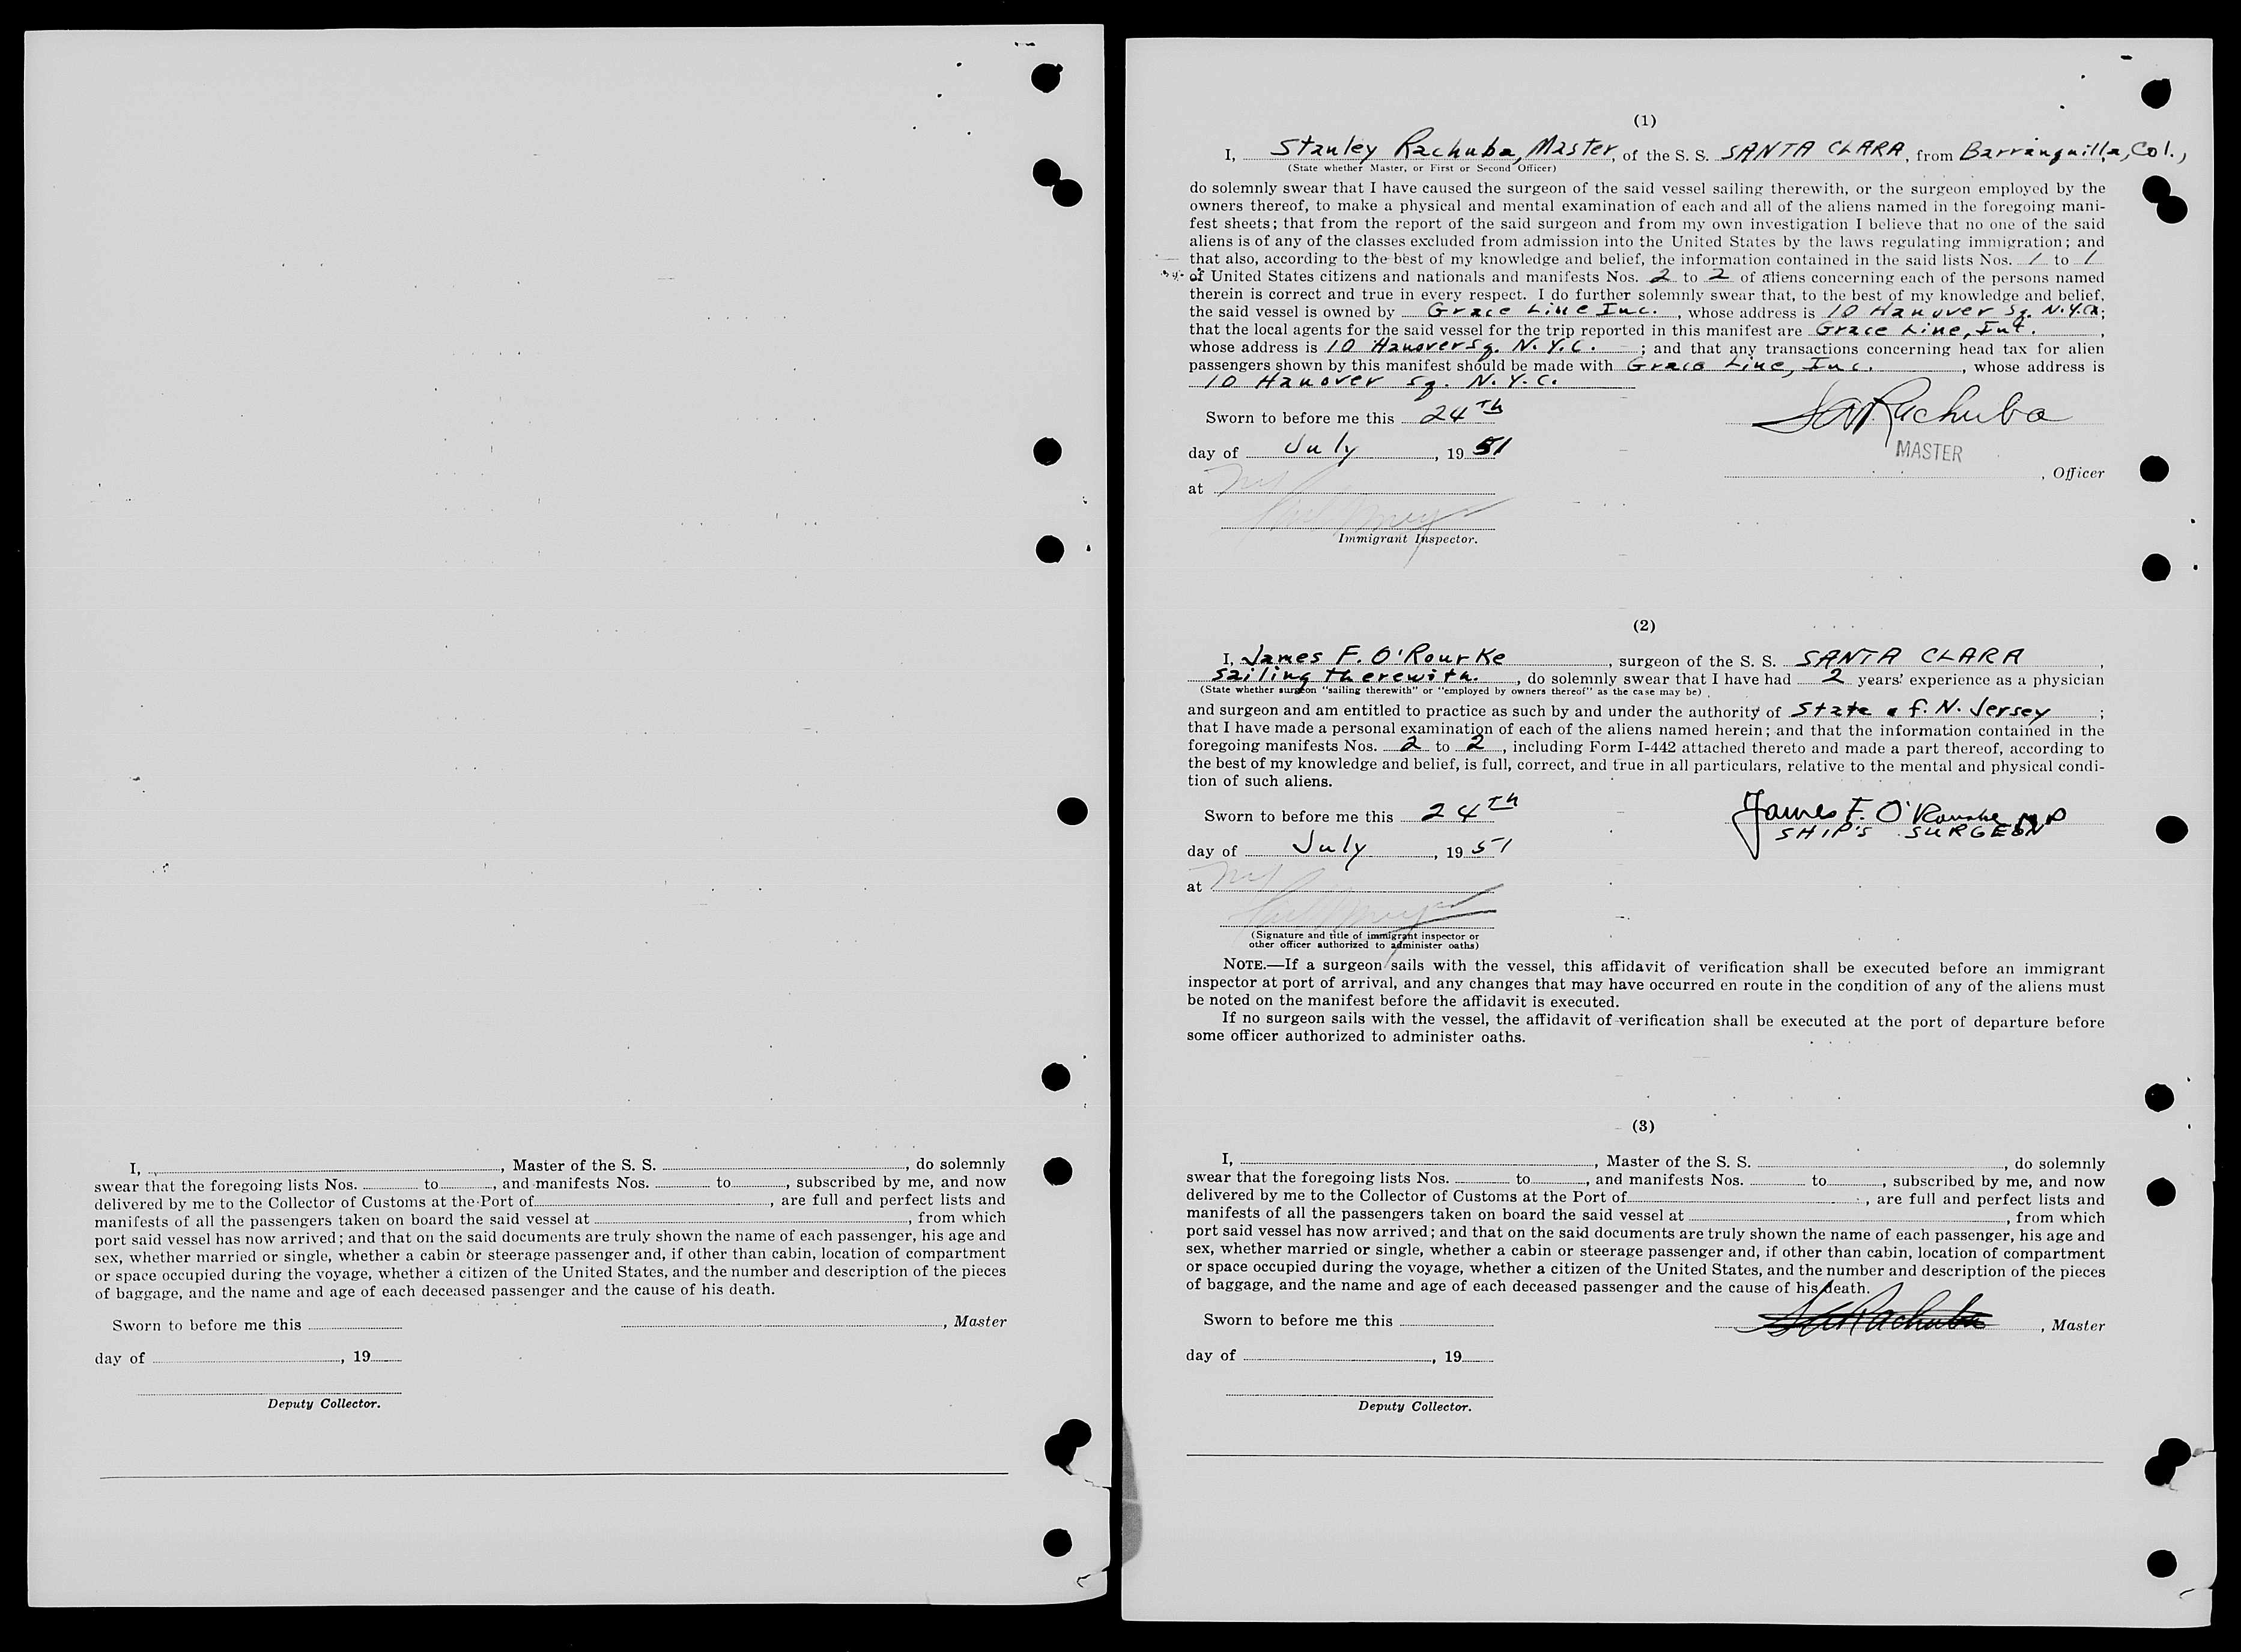 I, , Master of the S. S. , do solemnly
swear that the foregoing lists Nos. to , and manifests Nos. to , subscribed by me, and now
delivered by me to the Collector of Customs at the Port of , are full and perfect lists and
manifests of all the passengers taken on board the said vessel at , from which
port said vessel has now arrived; and that on the said documents are truly shown the name of each passenger, his age and
sex, whether married or single, whether a cabin or steerage passenger and, if other than cabin, location of compartment
or space occupied during the voyage, whether a citizen of the United States, and the number and description of the pieces
of baggage, and the name and age of each deceased passenger and the cause of his death.
Sworn to before me this , Master
day of , 19
Deputy Collector.
(1)
I, Stanley Rachuba, Master, of the S. S. SANTA CLARA, from Barranquilla, Col.,
(State whether Master, or First or Second Officer)
do solemnly swear that I have caused the surgeon of the said vessel sailing therewith, or the surgeon employed by the
owners thereof, to make a physical and mental examination of each and all of the aliens named in the foregoing mani-
fest sheets; that from the report of the said surgeon and from my own investigation I believe that no one of the said
aliens is of any of the classes excluded from admission into the United States by the laws regulating immigration; and
that also, according to the best of my knowledge and belief, the information contained in the said lists Nos. 1 to 1
of United States citizens and nationals and manifests Nos. 2 to 2 of aliens concerning each of the persons named
therein is correct and true in every respect. I do further solemnly swear that, to the best of my knowledge and belief,
the said vessel is owned by Grace Line Inc., whose address is 10 Hanover Sq. N.Y.C.;
that the local agents for the said vessel for the trip reported in this manifest are Grace Line, Inc.,
whose address is 10 Hanover Sq. N.Y.C.; and that any transactions concerning head tax for alien
passengers shown by this manifest should be made with Grace Line, Inc., whose address is
10 Hanover Sq. N.Y.C.
Sworn to before me this 24th Rachuba
day of July, 19 51 MASTER
, Officer
at
Immigrant Inspector.
(2)
I, James F. O'Rourke, surgeon of the S. S. SANTA CLARA,
sailing therewith., do solemnly swear that I have had 2 years' experience as a physician
(State whether surgeon "sailing therewith" or "employed by owners thereof" as the case may be)
and surgeon and am entitled to practice as such by and under the authority of State of. N. Jersey;
that I have made a personal examination of each of the aliens named herein; and that the information contained in the
foregoing manifests Nos. 2 to 2, including Form I-442 attached thereto and made a part thereof, according to
the best of my knowledge and belief, is full, correct, and true in all particulars, relative to the mental and physical condi-
tion of such aliens.
Sworn to before me this 24th James F. O'Rourke MD
SHIP'S SURGEON
day of July, 19 51
at
(Signature and title of immigrant inspector or
other officer authorized to administer oaths)
NOTE.—If a surgeon sails with the vessel, this affidavit of verification shall be executed before an immigrant
inspector at port of arrival, and any changes that may have occurred en route in the condition of any of the aliens must
be noted on the manifest before the affidavit is executed.
If no surgeon sails with the vessel, the affidavit of verification shall be executed at the port of departure before
some officer authorized to administer oaths.
(3)
I, , Master of the S. S. , do solemnly
swear that the foregoing lists Nos. to , and manifests Nos. to , subscribed by me, and now
delivered by me to the Collector of Customs at the Port of , are full and perfect lists and
manifests of all the passengers taken on board the said vessel at , from which
port said vessel has now arrived; and that on the said documents are truly shown the name of each passenger, his age and
sex, whether married or single, whether a cabin or steerage passenger and, if other than cabin, location of compartment
or space occupied during the voyage, whether a citizen of the United States, and the number and description of the pieces
of baggage, and the name and age of each deceased passenger and the cause of his death.
Sworn to before me this Rachuba, Master
day of , 19
Deputy Collector.